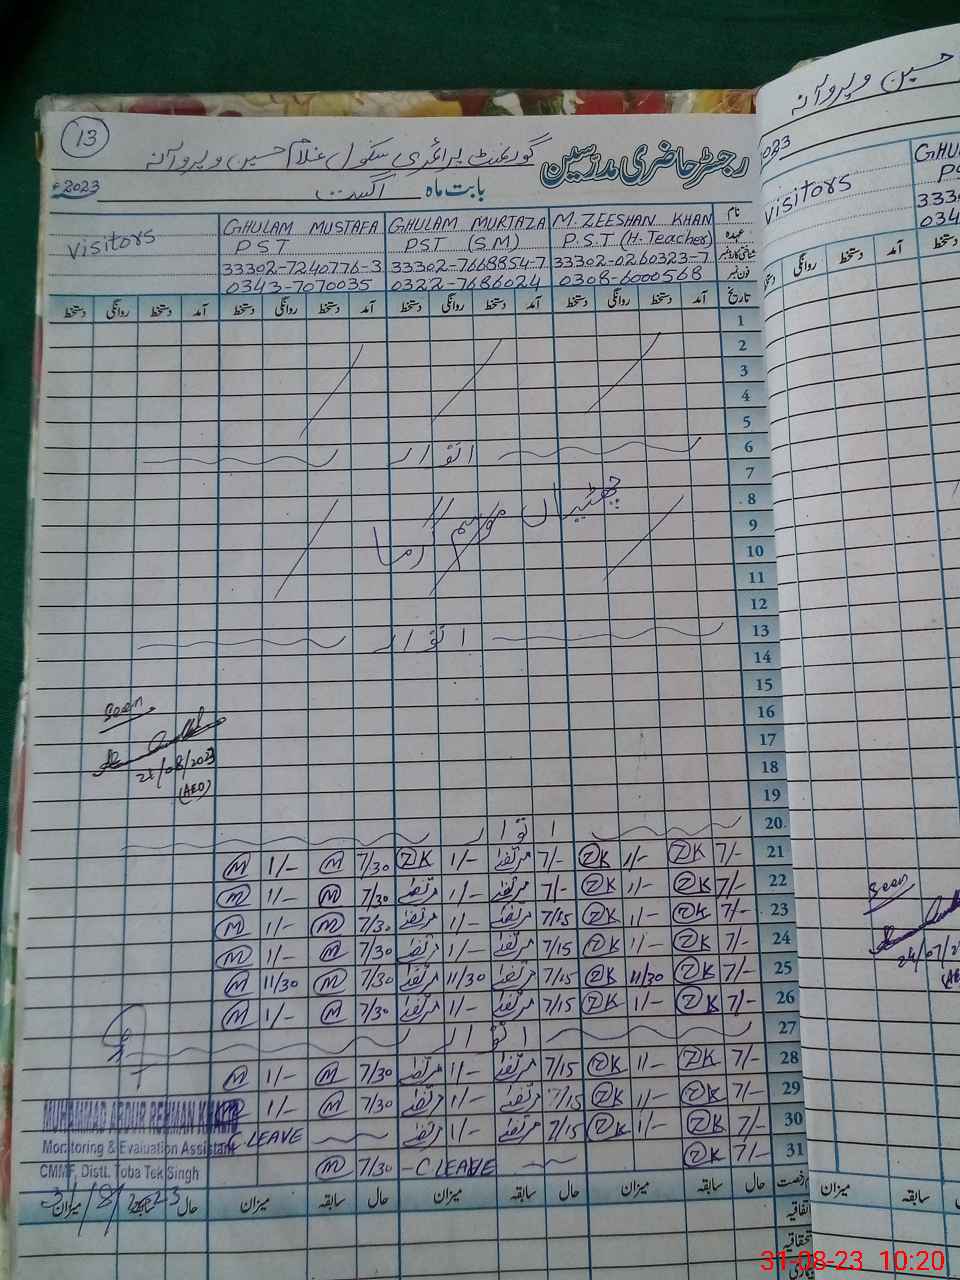 13
رجسٹر حاضری مدرسین گورنمنٹ پرائمری سکول غلام حسین و پروآنہ
بابت ماہ اگست 2023ء
نام M. ZEESHAN KHAN GHULAM MURTAZA GHULAM MUSTAFA Visitors
عہدہ P.S.T (H.Teacher) PST (S.M) PST
شناختی کارڈ نمبر 33302-0260323-7 33302-7668854-7 33302-7240776-3
فون نمبر 0308-6000568 0322-7686024 0343-7070035
تاریخ آمد دستخط روانگی دستخط آمد دستخط روانگی دستخط آمد دستخط روانگی دستخط آمد دستخط روانگی دستخط
1
2
3
4
5
6 اتوار
7
8 چھٹیاں
9 موسم گرما
10
11
12
13 اتوار
14
15
16 Seen
17
18 21/08/2023
19 (AEO)
20 اتوار
21 7/- ZK 1/- ZK 7/- مرتضیٰ 1/- ZK 7/30 M 1/- M
22 7/- ZK 1/- ZK 7/- مرتضیٰ 1/- مرتضیٰ 7/30 M 1/- M
23 7/- ZK 1/- ZK 7/15 مرتضیٰ 1/- مرتضیٰ 7/30 M 1/- M
24 7/- ZK 1/- ZK 7/15 مرتضیٰ 1/- مرتضیٰ 7/30 M 1/- M
25 7/- ZK 11/30 ZK 7/15 مرتضیٰ 11/30 مرتضیٰ 7/30 M 11/30 M
26 7/- ZK 1/- ZK 7/15 مرتضیٰ 1/- مرتضیٰ 7/30 M 1/- M
27 اتوار
28 7/- ZK 1/- ZK 7/15 مرتضیٰ 1/- مرتضیٰ 7/30 M 1/- M
29 7/- ZK 1/- ZK 7/15 مرتضیٰ 1/- مرتضیٰ 7/30 M 1/- M
30 7/- ZK 1/- ZK 7/15 مرتضیٰ 1/- مرتضیٰ C LEAVE
31 7/- ZK C LEAVE 7/30 M
MUHAMMAD ABDUR REHMAN KHALID
Monitoring & Evaluation Assistant
CMMF, Distt. Toba Tek Singh
31/8/2023
رخصت حال سابقہ میزان حال سابقہ میزان حال سابقہ میزان حال سابقہ میزان
اتفاقیہ
حسین و پروآنہ
2023
GHU
Visitors PS
3330
034
دستخط روانگی دستخط
Seen
24/07/2
(AE
سابقہ میزان
31-08-23 10:20